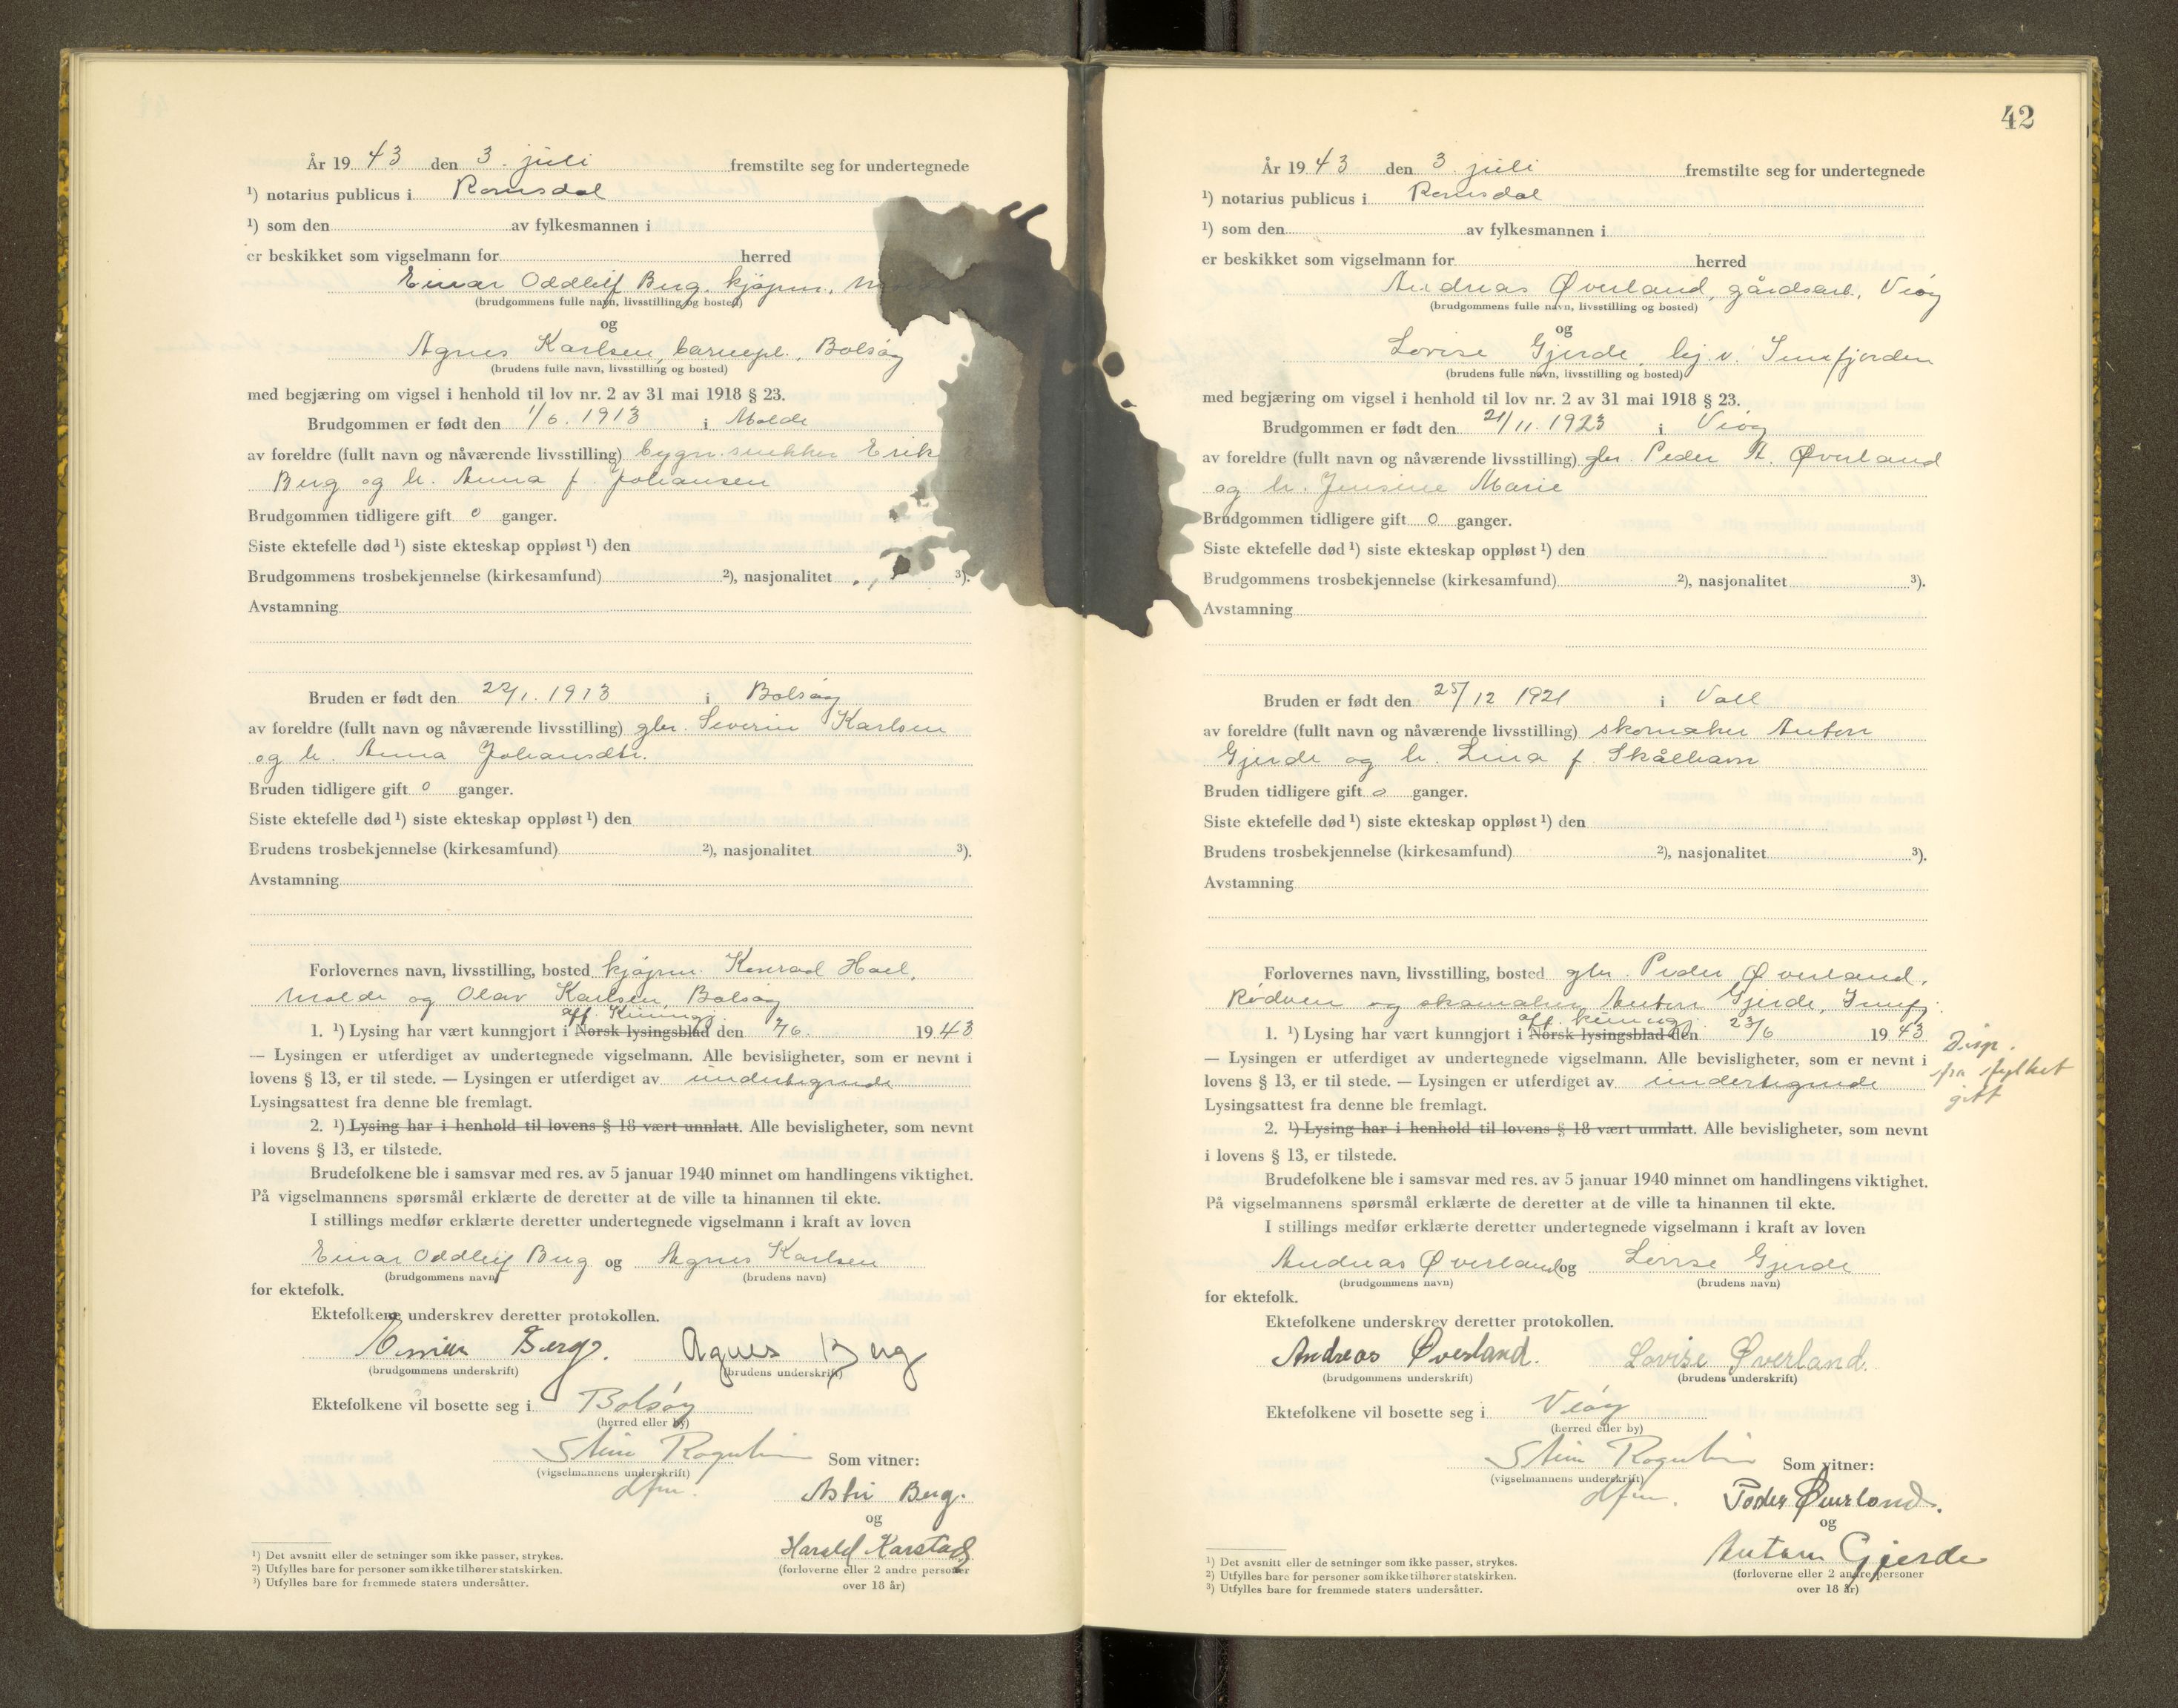 År 19 43 den 3. juli fremstilte seg for undertegnede
¹) notarius publicus i Romsdal
¹) som den av fylkesmannen i
er beskikket som vigselmann for herred
Einar Oddleif Berg. kjøpm.,
(brudgommens fulle navn, livsstilling og bosted)
og
Agnes Karlsen, barnepl., Bolsøy
(brudens fulle navn, livsstilling og bosted)
med begjæring om vigsel i henhold til lov nr. 2 av 31 mai 1918 § 23.
Brudgommen er født den 1/6. 1913 i Molde
av foreldre (fullt navn og nåværende livsstilling) bygn.snekker Erik
Berg og h. Anna f. Johansen
Brudgommen tidligere gift 0 ganger.
Siste ektefelle død ¹) siste ekteskap oppløst ¹) den
Brudgommens trosbekjennelse (kirkesamfund) ²), nasjonalitet ³).
Avstamning
Bruden er født den 22/1. 1913 i Bolsøy
av foreldre (fullt navn og nåværende livsstilling) gbr. Severin Karlsen
og h. Anna Johansdtr.
Bruden tidligere gift 0 ganger.
Siste ektefelle død ¹) siste ekteskap oppløst ¹) den
Brudens trosbekjennelse (kirkesamfund) ²), nasjonalitet ³).
Avstamning
Forlovernes navn, livsstilling, bosted kjøpm. Konrad Hoel,
Molde og Olav Karlsen, Bolsøy
off. kunngj.
1. ¹) Lysing har vært kunngjort i Norsk lysingsblad den 7/6. 19 43
— Lysingen er utferdiget av undertegnede vigselmann. Alle bevisligheter, som er nevnt i
lovens § 13, er til stede. — Lysingen er utferdiget av undertegnede
Lysingsattest fra denne ble fremlagt.
2. ¹) Lysing har i henhold til lovens § 18 vært unnlatt. Alle bevisligheter, som nevnt
i lovens § 13, er tilstede.
Brudefolkene ble i samsvar med res. av 5 januar 1940 minnet om handlingens viktighet.
På vigselmannens spørsmål erklærte de deretter at de ville ta hinannen til ekte.
I stillings medfør erklærte deretter undertegnede vigselmann i kraft av loven
Einar Oddleif Berg og Agnes Karlsen
(brudgommens navn) (brudens navn)
for ektefolk.
Ektefolkene underskrev deretter protokollen.
Einar Berg. Agnes Berg
(brudgommens underskrift) (brudens underskrift)
Ektefolkene vil bosette seg i Bolsøy
(herred eller by)
Som vitner:
(vigselmannens underskrift)
dfm. Berg.
og
Harald Karstad
(forloverne eller 2 andre personer
over 18 år)
¹) Det avsnitt eller de setninger som ikke passer, strykes.
²) Utfylles bare for personer som ikke tilhører statskirken.
³) Utfylles bare for fremmede staters undersåtter.
42
År 19 43 den 3 juli fremstilte seg for undertegnede
¹) notarius publicus i Romsdal
¹) som den av fylkesmannen i
er beskikket som vigselmann for herred
Andreas Øverland, gårdsarb., Veøy
(brudgommens fulle navn, livsstilling og bosted)
og
Lovise Gjerde, hj.v. Innfjorden
(brudens fulle navn, livsstilling og bosted)
med begjæring om vigsel i henhold til lov nr. 2 av 31 mai 1918 § 23.
Brudgommen er født den 21/11. 1923 i Veøy
av foreldre (fullt navn og nåværende livsstilling) gbr. Peder A. Øverland
og h. Jensine Marie
Brudgommen tidligere gift 0 ganger.
Siste ektefelle død ¹) siste ekteskap oppløst ¹) den
Brudgommens trosbekjennelse (kirkesamfund) ²), nasjonalitet ³).
Avstamning
Bruden er født den 25/12 1921 i Voll
av foreldre (fullt navn og nåværende livsstilling) skomaker Anton
Gjerde og h. Lina f. Skålhavn
Bruden tidligere gift 0 ganger.
Siste ektefelle død ¹) siste ekteskap oppløst ¹) den
Brudens trosbekjennelse (kirkesamfund) ²), nasjonalitet ³).
Avstamning
Forlovernes navn, livsstilling, bosted gbr. Peder Øverland,
Rødven og skomaker Anton Gjerde, Innfj.
off. kunngj.
1. ¹) Lysing har vært kunngjort i Norsk lysingsblad den 23/6 19 43
Disp.
fra fylket
gitt
— Lysingen er utferdiget av undertegnede vigselmann. Alle bevisligheter, som er nevnt i
lovens § 13, er til stede. — Lysingen er utferdiget av undertegnede
Lysingsattest fra denne ble fremlagt.
2. ¹) Lysing har i henhold til lovens § 18 vært unnlatt. Alle bevisligheter, som nevnt
i lovens § 13, er tilstede.
Brudefolkene ble i samsvar med res. av 5 januar 1940 minnet om handlingens viktighet.
På vigselmannens spørsmål erklærte de deretter at de ville ta hinannen til ekte.
I stillings medfør erklærte deretter undertegnede vigselmann i kraft av loven
Andreas Øverland og Lovise Gjerde
(brudgommens navn) (brudens navn)
for ektefolk.
Ektefolkene underskrev deretter protokollen.
Andreas Øverland. Lovise Øverland.
(brudgommens underskrift) (brudens underskrift)
Ektefolkene vil bosette seg i Veøy
(herred eller by)
Som vitner:
(vigselmannens underskrift)
dfm. Peder Øverland.
og
Anton Gjerde
(forloverne eller 2 andre personer
over 18 år)
¹) Det avsnitt eller de setninger som ikke passer, strykes.
²) Utfylles bare for personer som ikke tilhører statskirken.
³) Utfylles bare for fremmede staters undersåtter.